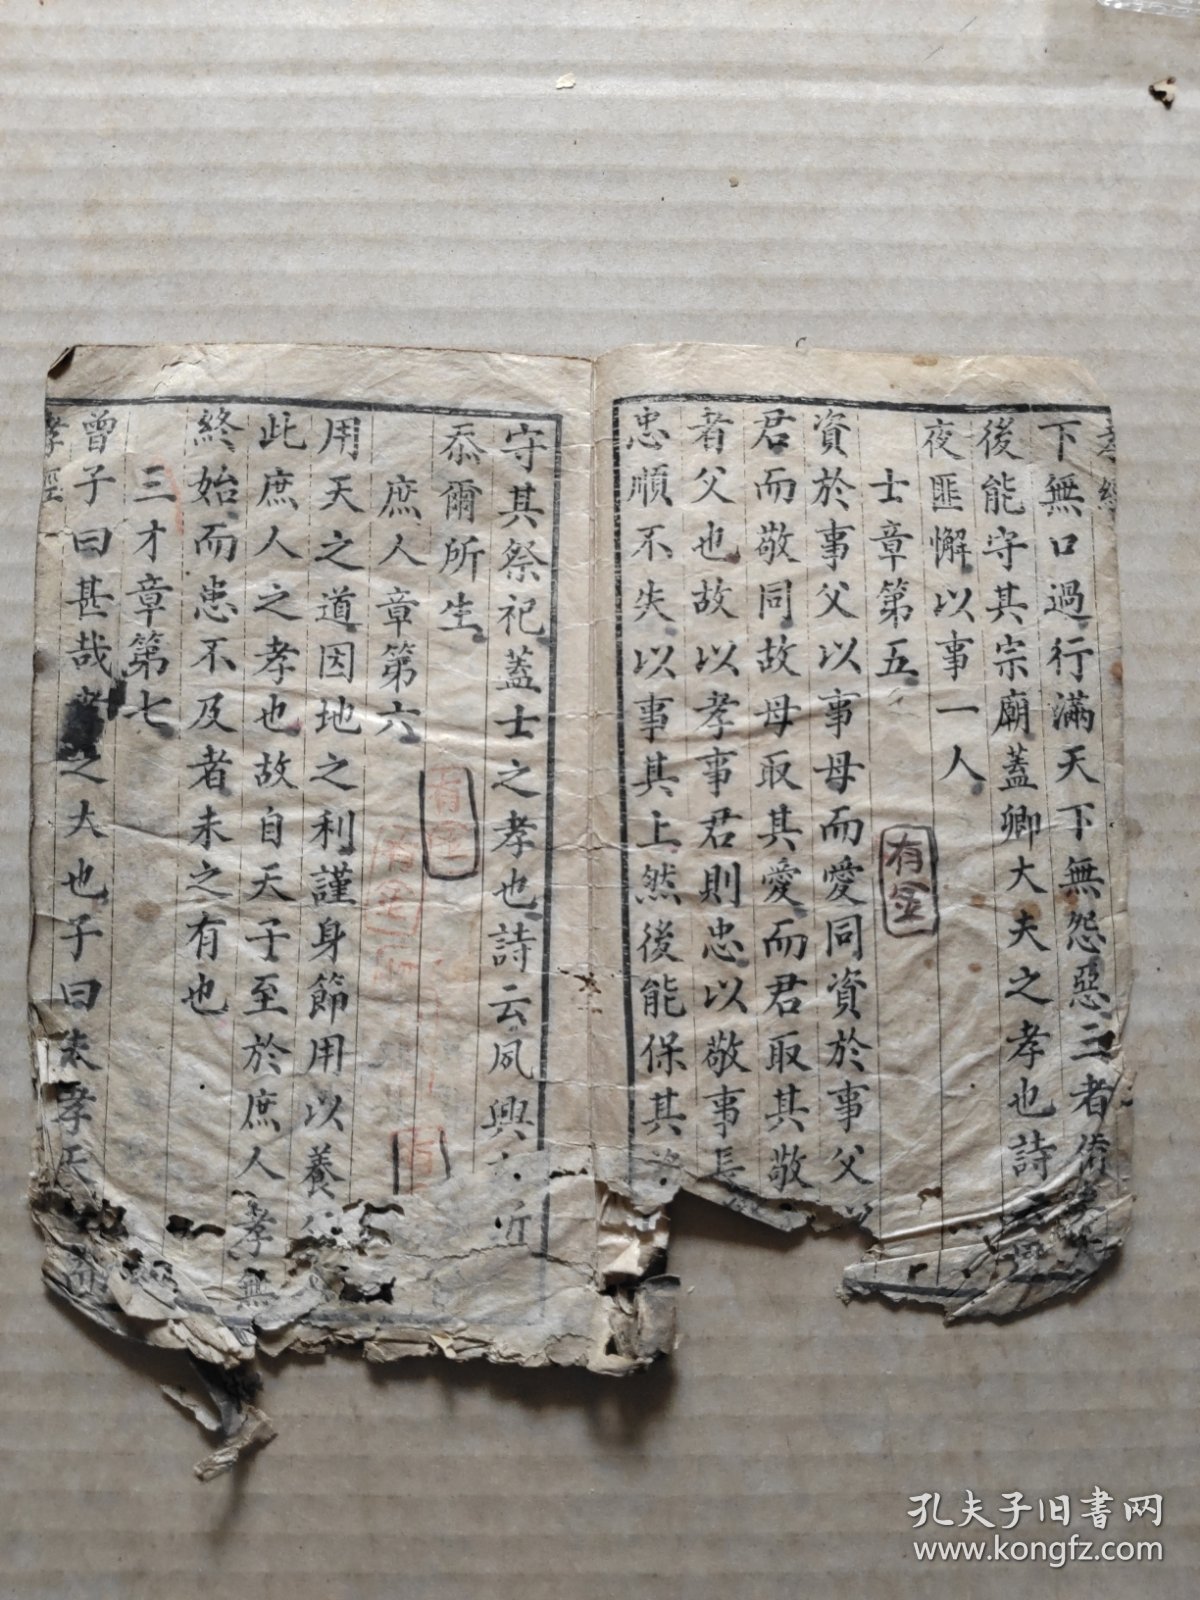 孝經
下無口過行滿天下無怨惡三者備矣
後能守其宗廟蓋卿大夫之孝也詩
夜匪懈以事一人
士章第五
資於事父以事母而愛同資於事父
君而敬同故母取其愛而君取其敬
者父也故以孝事君則忠以敬事長
忠順不失以事其上然後能保其
守其祭祀蓋士之孝也詩云夙興
忝爾所生
庶人章第六
用天之道因地之利謹身節用以養
此庶人之孝也故自天子至於庶人孝無
終始而患不及者未之有也
三才章第七
曾子曰甚哉孝之大也子曰夫孝天
孝經
有金
有金
有金
孔夫子旧书网
www.kongfz.com